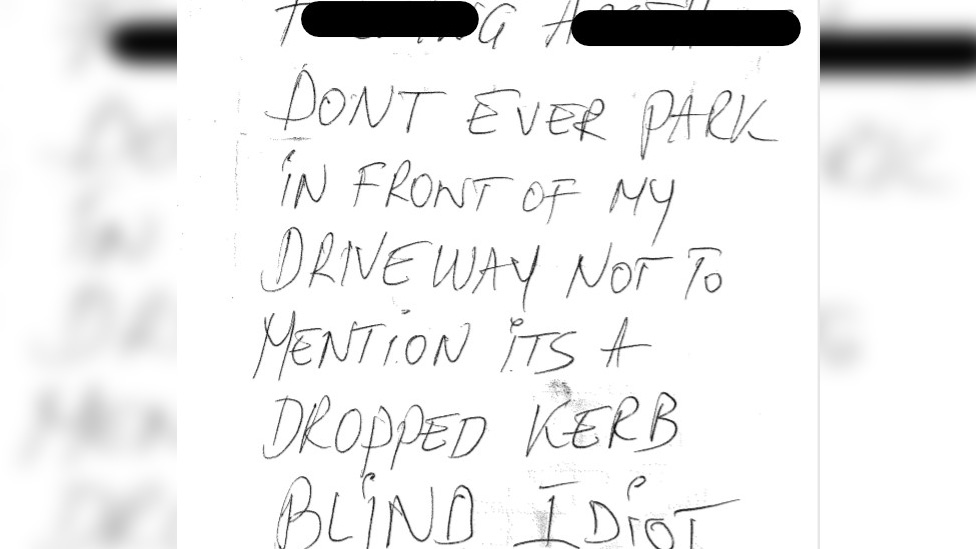 DONT EVER PARK
iN FRONT OF MY
DRIVEWAY NOT TO
MENTiON iTS A
DROPPED KERB
BLiND IDiOT